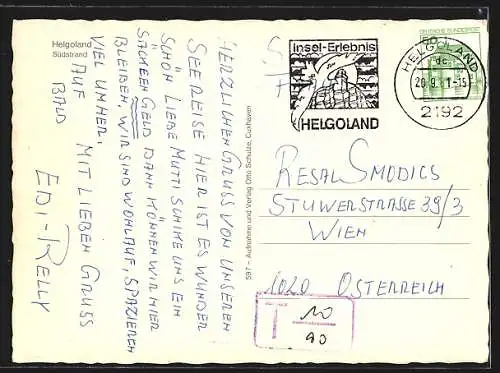 Helgoland
Südstrand
HERZLICHEN GRUSS VON UNSEREN
SEEREISE HIER IST ES WUNDER
SCHÖN LIEBE MUTTI SCHIKE UNS EIN
SÄCKEEN GELD DANN KÖNNEN WIR HIER
BLEIBEN, WIR SIND WOHLAUF, SPAZIEREN
VIEL UMHER.
AUF MIT LIEBEN GRUSS
BALD
EDI-RELLY
597 - Aufnahme und Verlag Otto Schulze, Cuxhaven
Insel-Erlebnis
HELGOLAND
DEUTSCHE BUNDESPOST
50
HELGOLAND
dc
-15
2192
RESAL SMODICS
STUWERSTRASSE 39/3
WIEN
1020 ÖSTERREICH
T 10
90